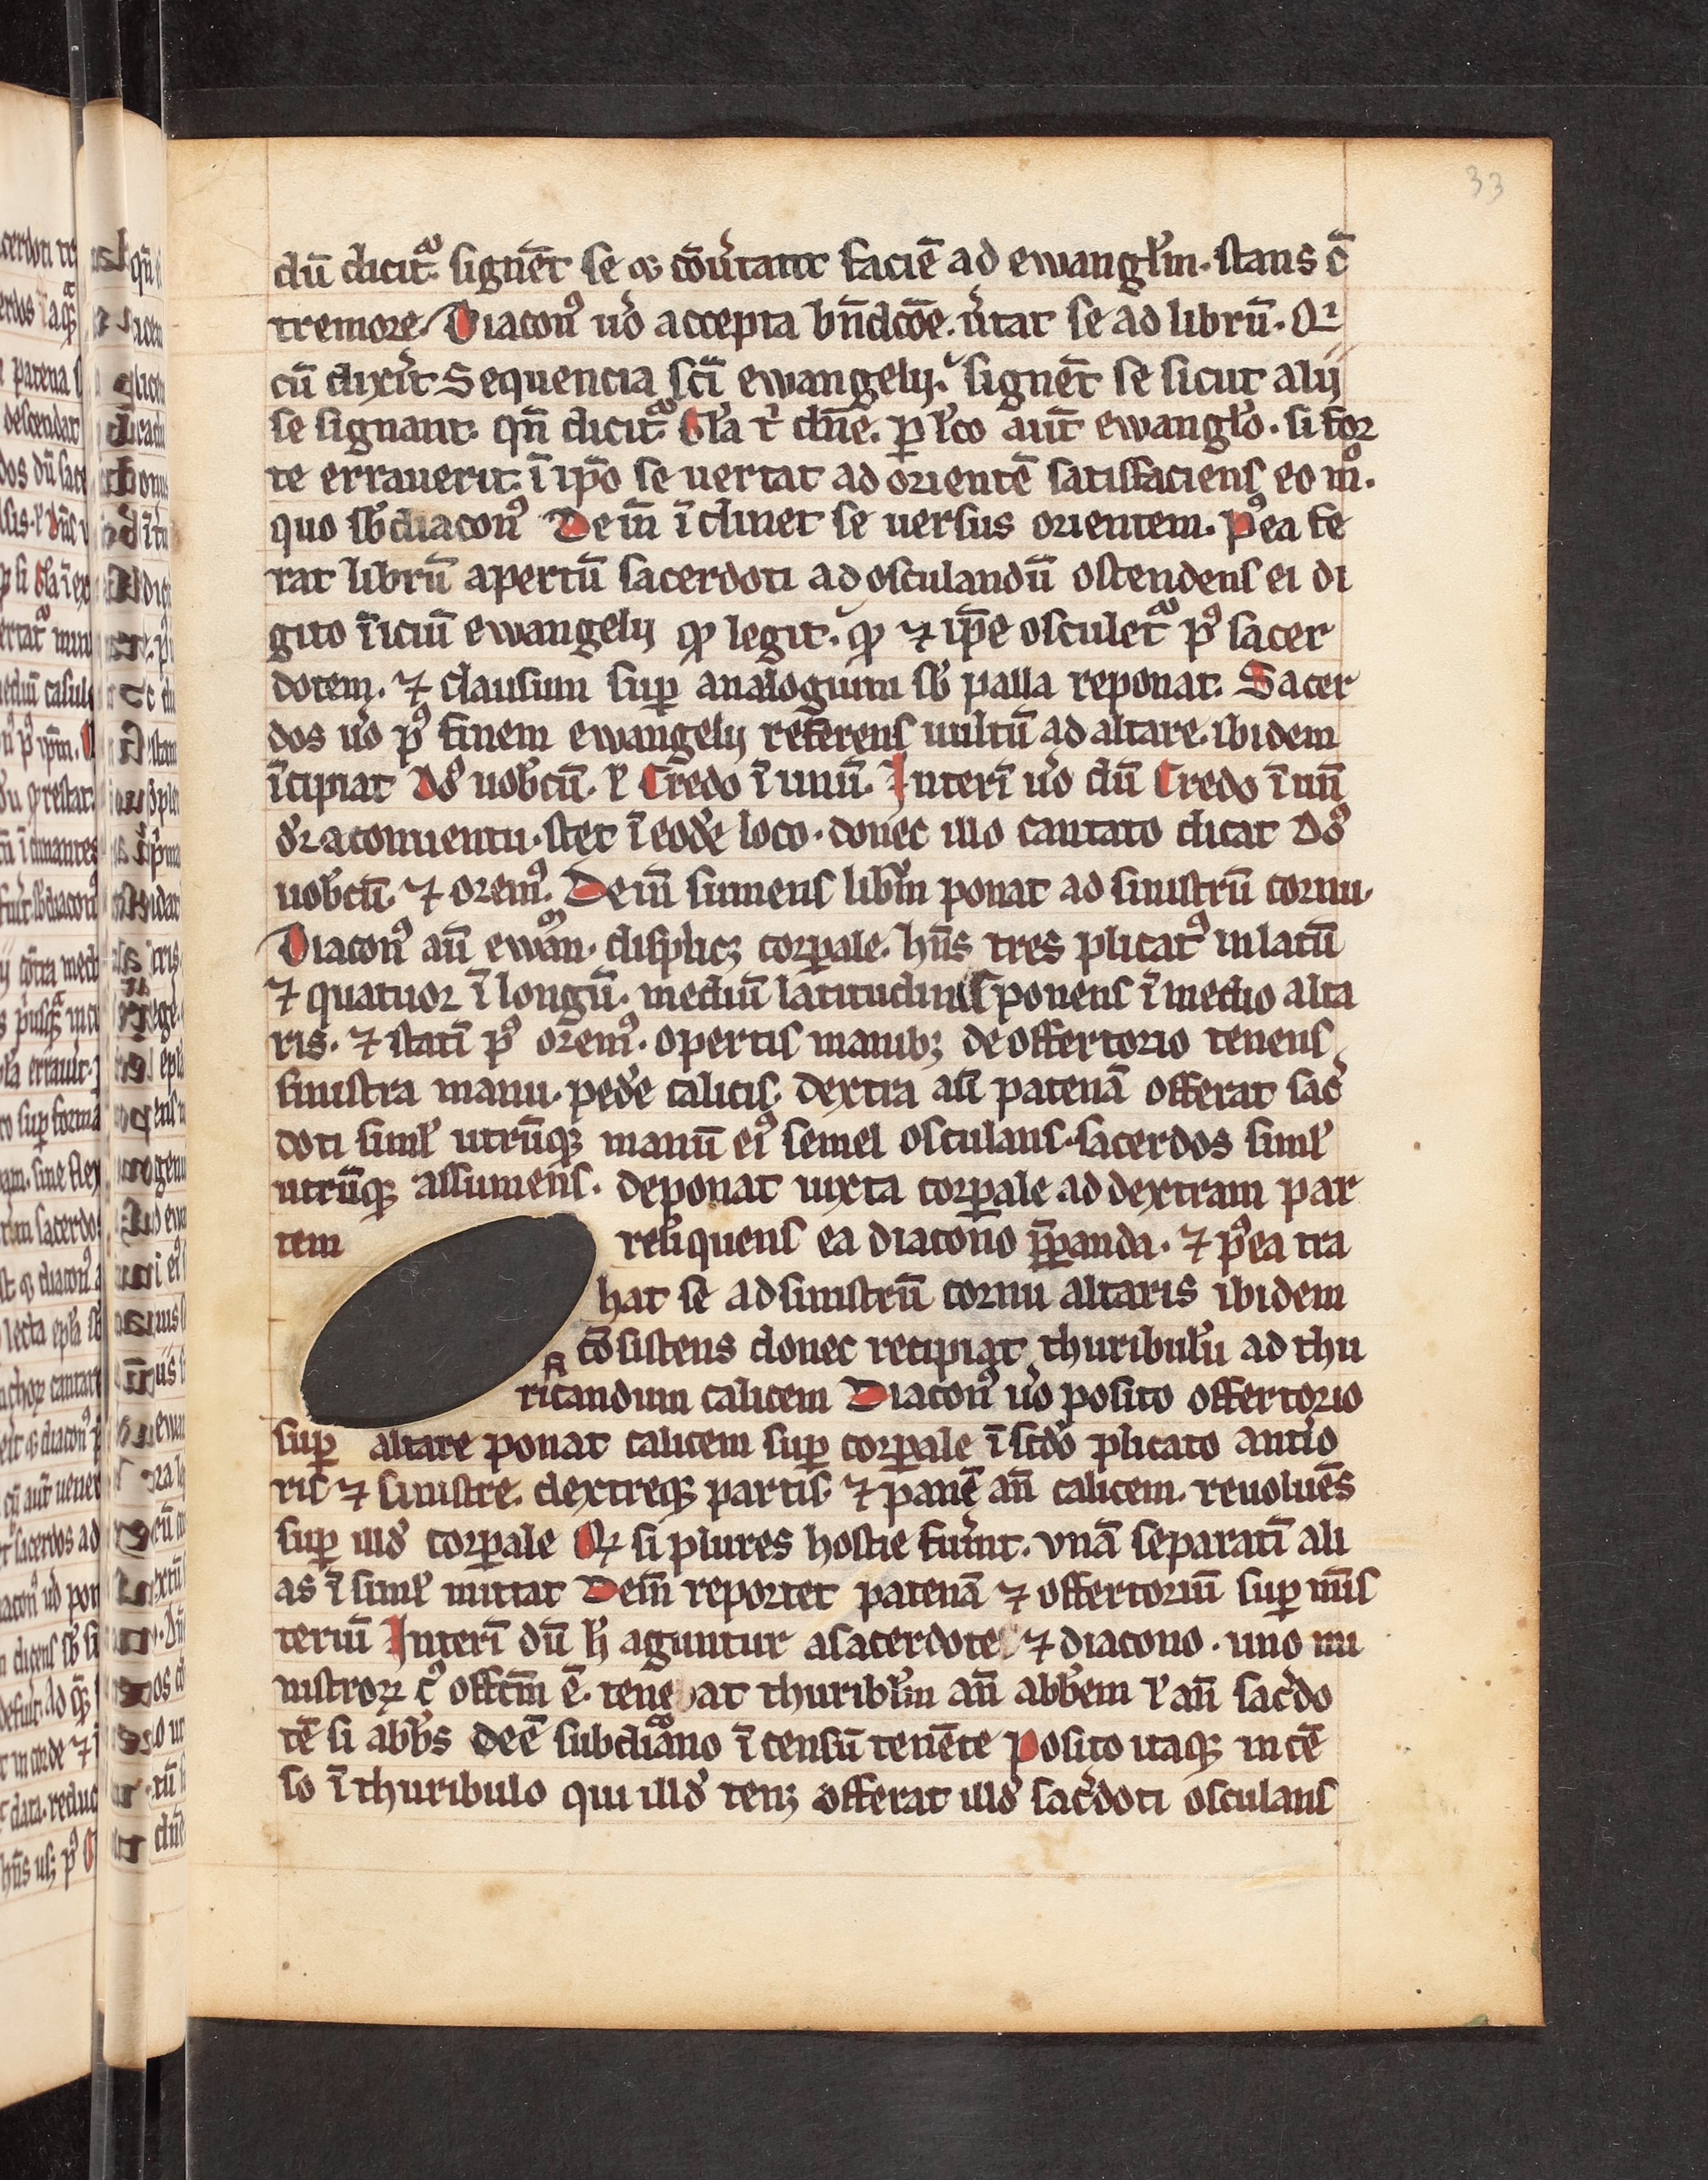 33
dū dicit᷑. signēt se ⁊ cōu̓tant faciē ad ewangl̓m. stans c̄
tremore. Diacon᷒ u̓o accepta bn̄dcōe. u̓tat se ad librū. Qr
cū dixit̓ Sequencia sc̄i ewangelij. signet se sicut alij
se signant. qn̄ dicit᷑ Gl̓a t̓ dn̄e. ꝑ lc̓o aut̄ ewangl̓o. si for
te errauerit. ī ip̄o se uertat ad orientē satisfaciens eo m̊.
quo sb̓diacon᷒ Dem̄ īclinet se uersus orientem. p᷒ea fe
rat librū apertū sacerdoti ad osculandū ostendens ei di
gito īiciū ewangelij qd̓ legit. qd̓ ⁊ ip̄e osculet᷑ p᷒ sacer
dotem. ⁊ clausum suꝑ analogium sb̓ palla reponat. Sacer
dos u̓o p᷒ finem ewangelij referens uultū ad altare. ibidem
īcipiat Dn̄s uob̓cū. l̓ Credo ī unū. Interī u̓o dū Credo ī un̄
dr̓ a conuentu. stet ī eod̓e loco. donec illo cantato dicat Dn̄s
uob̓cū. ⁊ orem᷒. Dem̄ sumens libr̓m ponat ad sinistrū cornu.
Diacon᷒ aū ewām. displicꝫ corꝑale. hn̄s tres plicat᷒ in latū
⁊ quatuor ī longū. mediū latitudinis ponens ī medio alta
ris. ⁊ statī p᷒ orem᷒. opertis manibꝫ de offertorio tenens
sinistra manu. ped̓e calicis. dextra aū patenā offerat sac̓
doti siml̓ utrūqꝫ manū ei᷒ semel osculans. sacerdos siml̓
utrūqꝫ assumens. deponat iuxta corꝑale ad dextram par
tem relīquens ea diacono p̄ꝑanda. ⁊ p᷒ea tra
hat se ad sinistrū cornu altaris ibidem
cōsistens donec recipiat thuribulū ad thu
rificandum calicem Diacon᷒ u̓o posito offertorio
suꝑ altare ponat calicem suꝑ corꝑale ī sc̄do plicato anti̓o
ris ⁊ sinistre. dextreqꝫ partis. ⁊ panē an̄ calicem. reuoluēs
suꝑ illd̓ corꝑale Qd̓ si plures hostie fu̓int. vnā separatī ali
as ī siml̓ mittat Dem̄ reportet patenā ⁊ offertoriū suꝑ mīs
teriū Interī dū h̄ aguntur a sacerdote ⁊ diacono. uno mi
nistroꝝ c᷒ offm̄ ē. teneat thuribl̓m an̄ abb̓em l̓ an̄ sac̓do
tē si abb̓s deē subdiāno ī censū tenēte Posito itaqꝫ in cē
so ī thuribulo qui illd̓ tenꝫ offerat illd̓ sac̓doti osculans